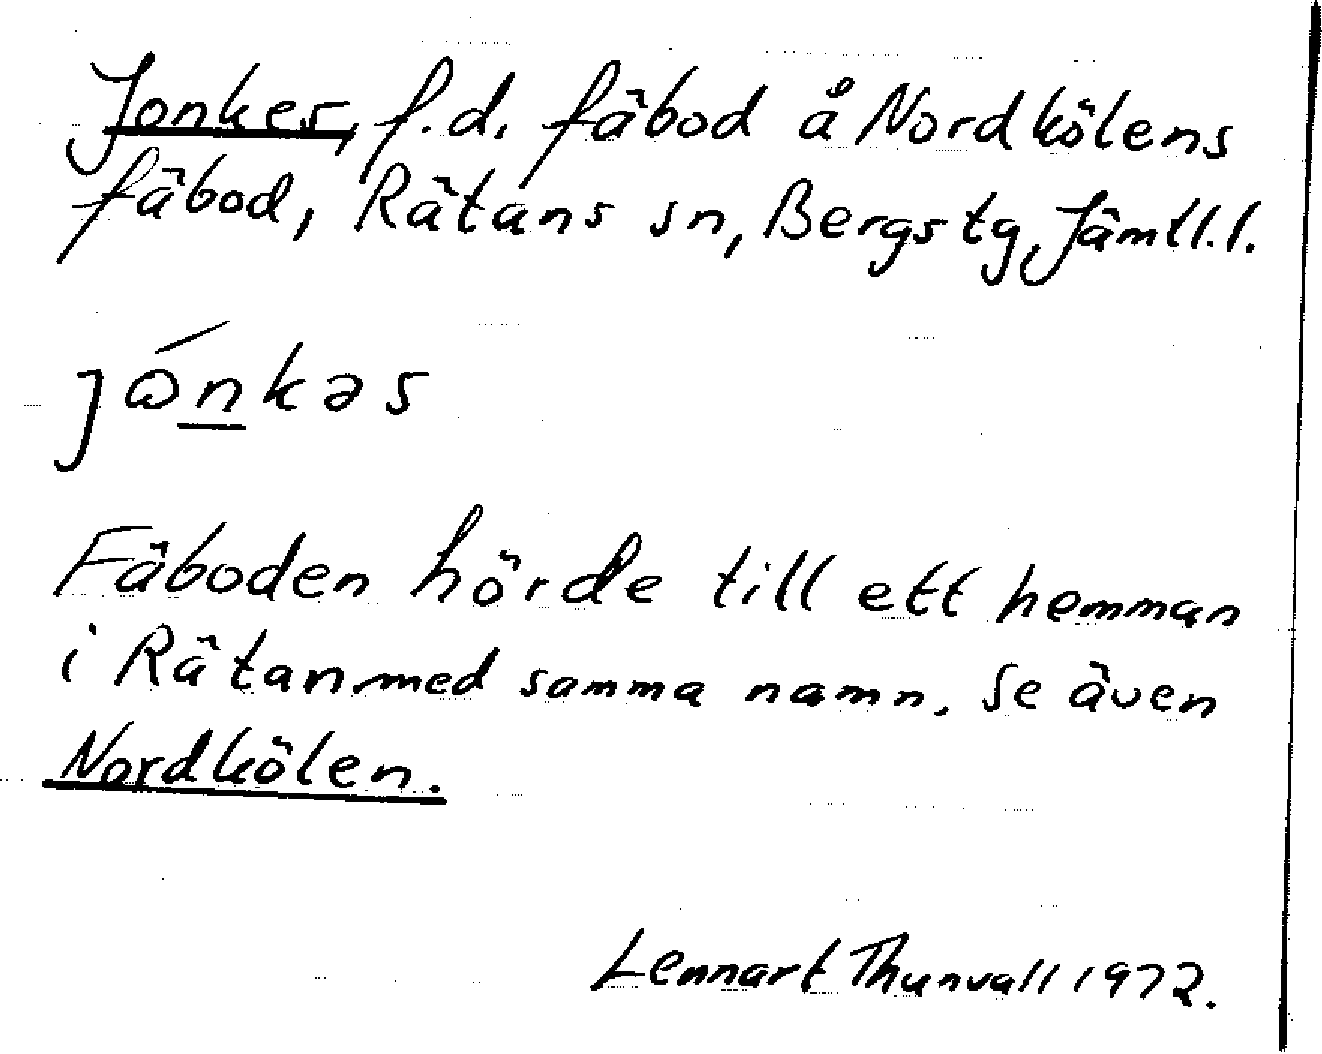 Jonkes, f.d. fäbod å Nordkölens
fäbod, Rätans sn, Bergs tg, Jämtl.l.
jǻnkəs
Fäboden hörde till ett hemman
i Rätan med samma namn. Se även
Nordkölen.
Lennart Thunvall 1972.